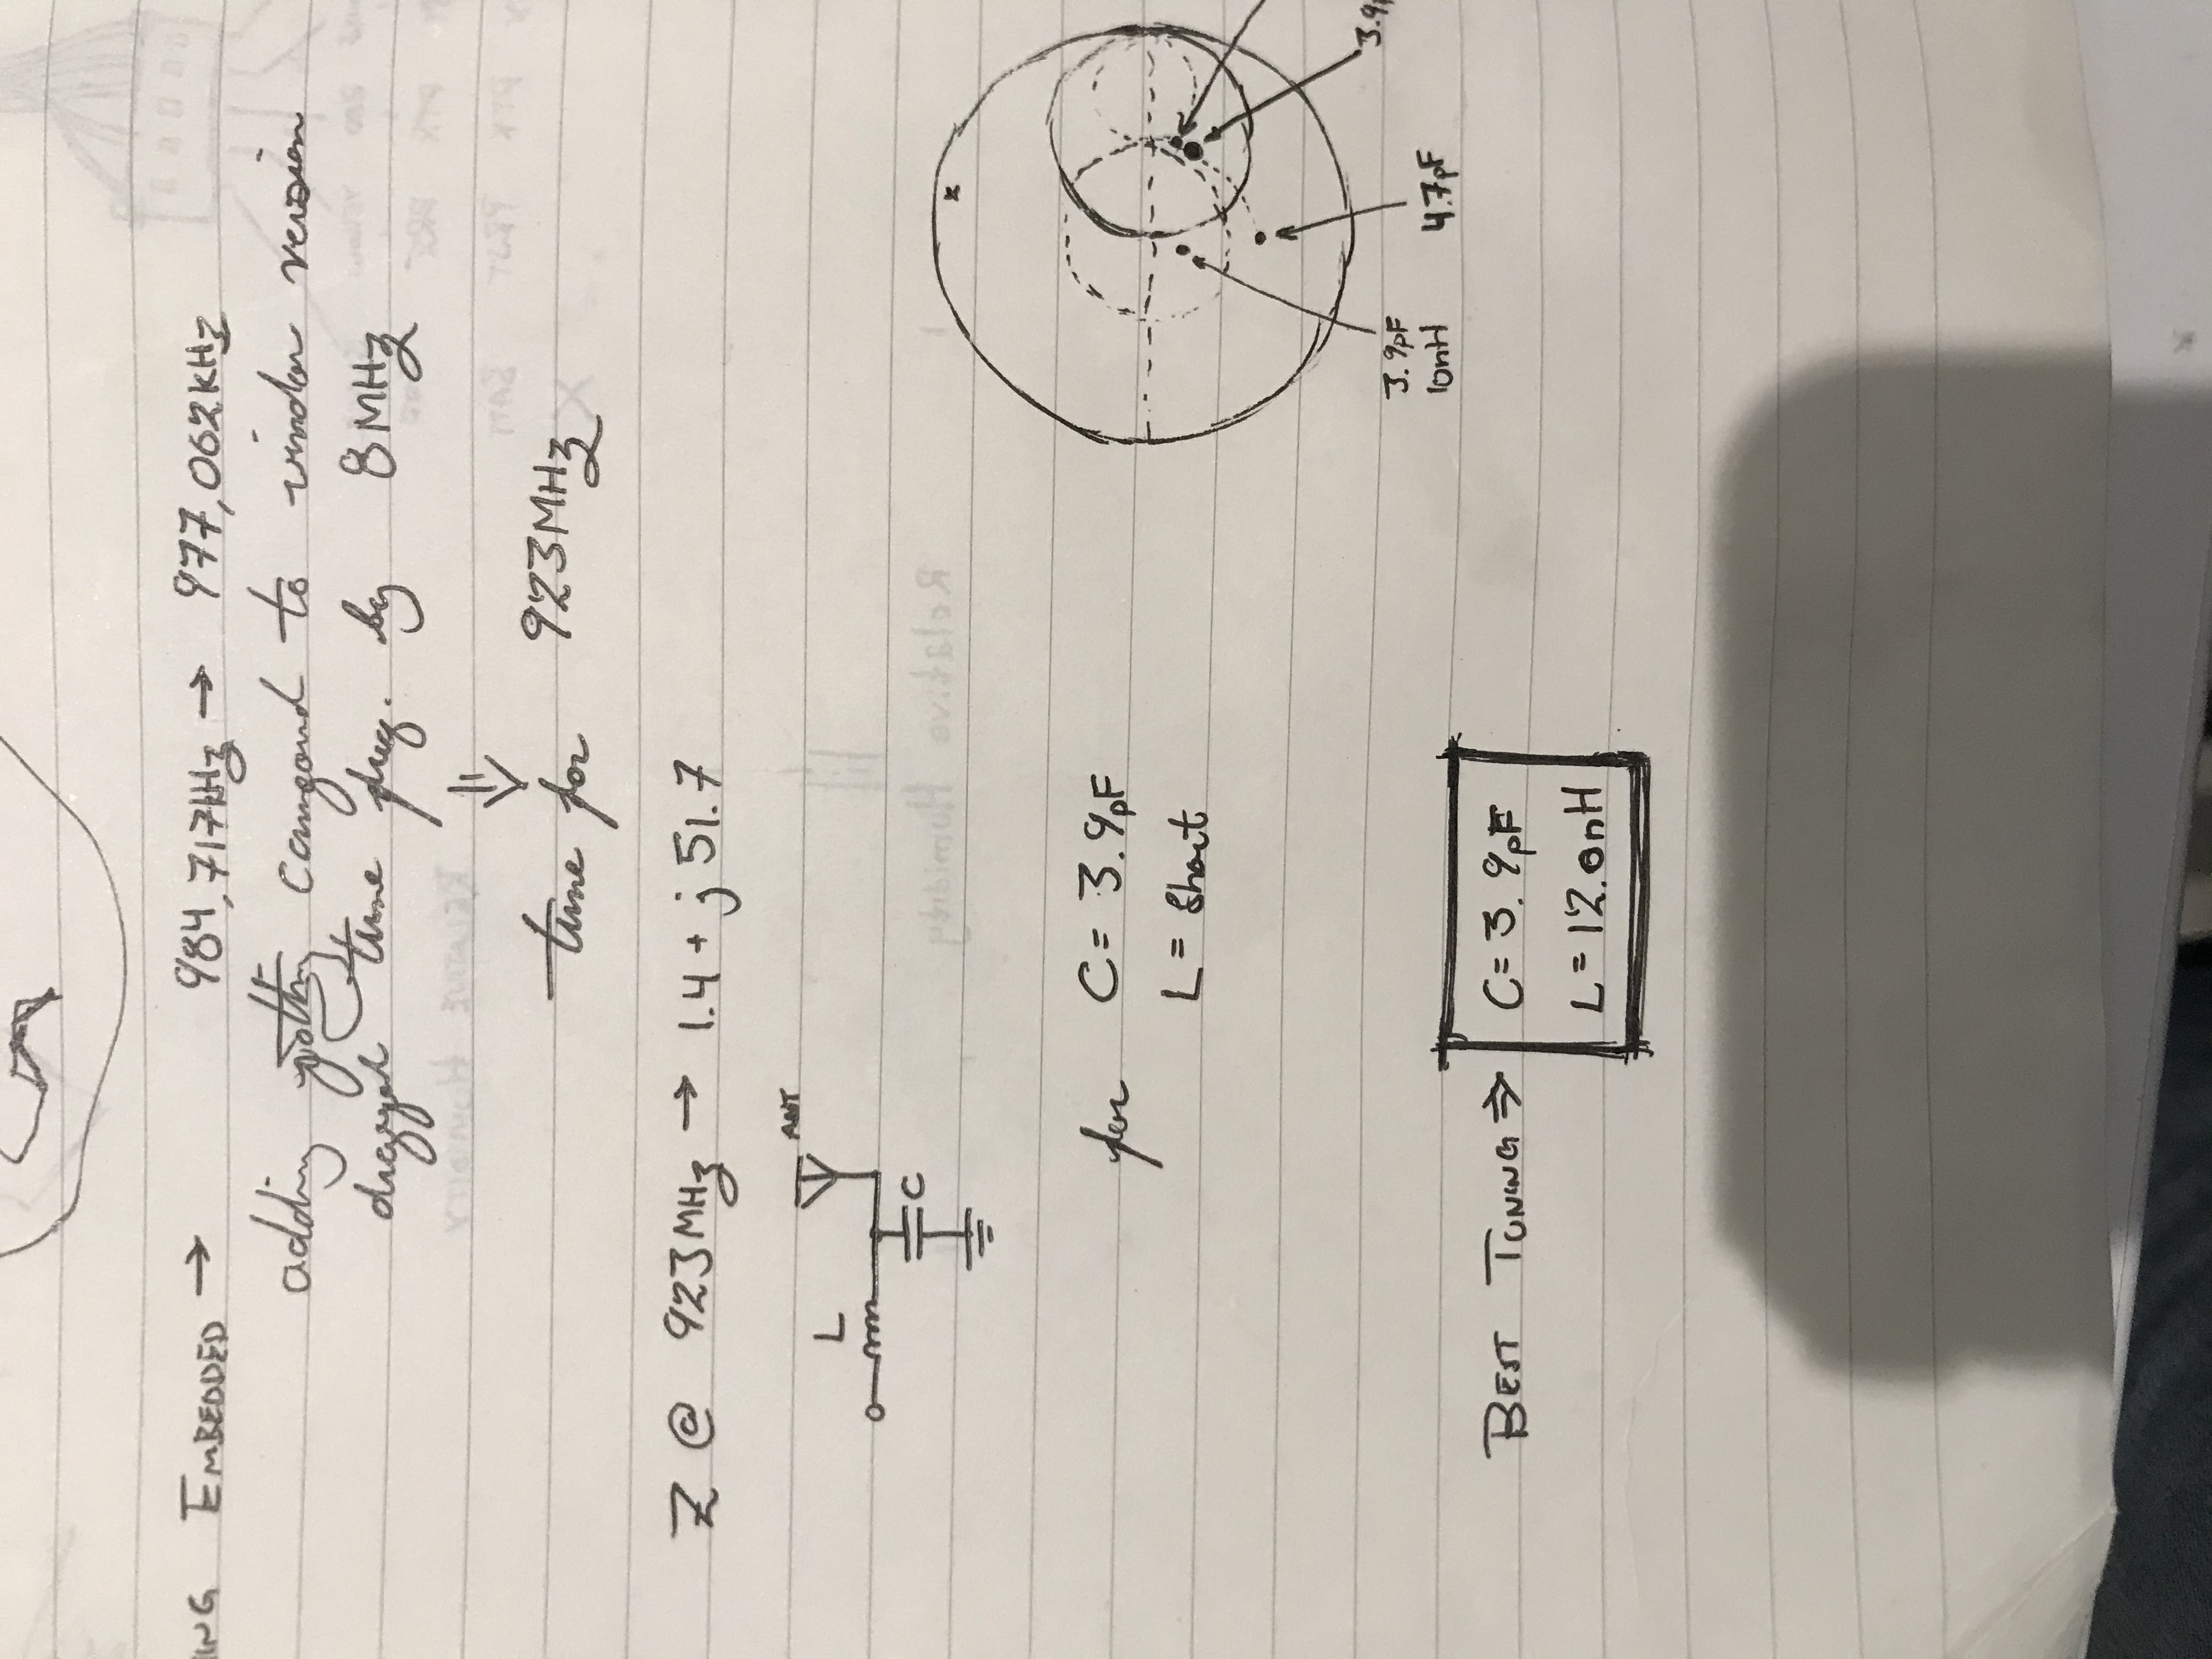 ING EMBEDDED → 984,717kHz → 977,062kHz
adding potting compound to window version
dragged tune freq. by 8MHz
tune for 923MHz
Z @ 923MHz → 1.4 + j 51.7
L
ANT
C
for C = 3.9pF
L = Short
3.9p
4.7pF
3.9pF
10nH
BEST TUNING ⇒ C = 3.9pF
L = 12.0nH